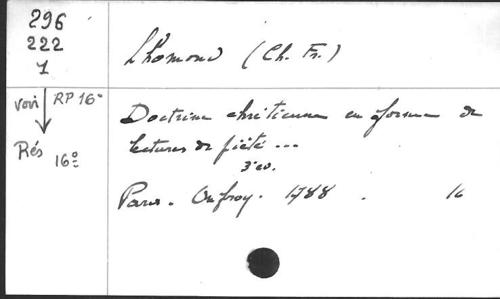 296
222
1
Lhomond (Ch. Fr.)
voir RP 16°
Rés 16°
Doctrine chrétienne en forme de
lectures de piété ...
3e éd.
Paris. Onfroy. 1788. 16